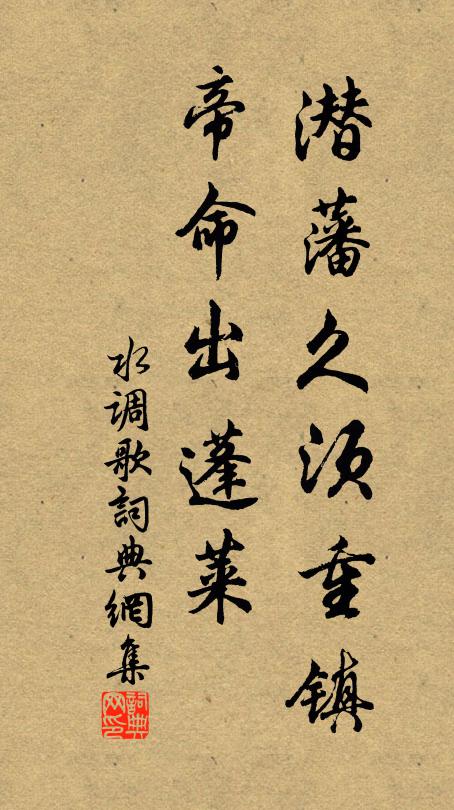 潜藩久须重镇
帝命出蓬莱
水调歌詞典網集
詞典网印